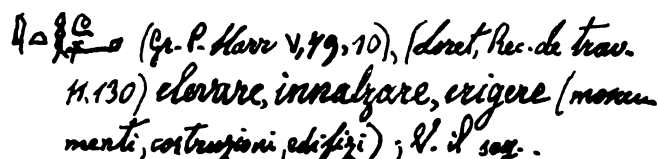 (Gr. P. Harr V, 79, 10), (Loret, Rec. de trav.
11.130) elevare, innalzare, erigere (monu
menti, costruzioni, edifizi); V. il seg..